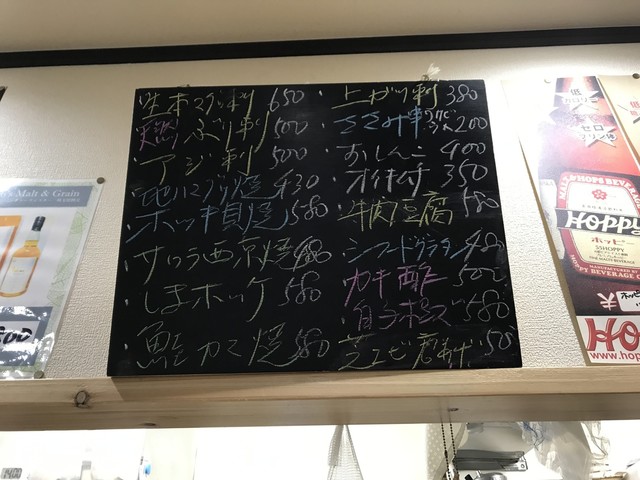 生本マグロ刺 650
天然ぶり刺 500
アジ刺 500
地ハマグリ焼 430
ホッキ貝焼 580
サワラ西京焼
しまホッケ 580
鮭カマ焼
上がり刺 380
ささみ串 200
おしんこ 400
オイキムチ 350
牛肉豆腐 580
シーフードグラタン 480
カキ酢 500
580
芝エビ唐揚げ
's Malt & Grain
低カロリー
ゼロ
プリン体
MALT & HOPS BEVERAGE
HOPPY
ホッピー
55HOPPY
MANUFACTURED BY
HOPPY BEVERAGE CO
www.hopp